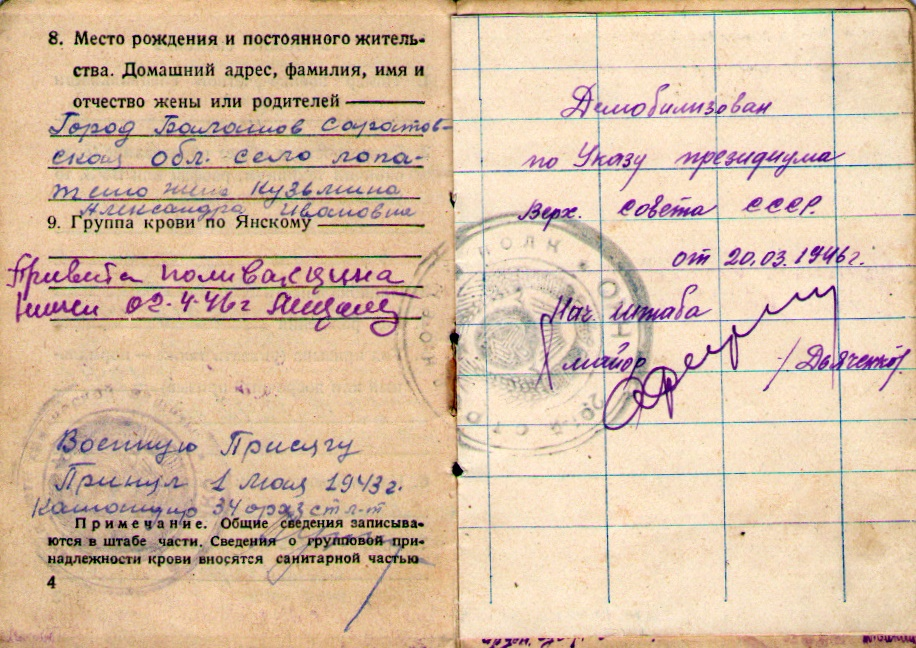 8. Место рождения и постоянного житель-
ства. Домашний адрес, фамилия, имя и
отчество жены или родителей
Город Балашов Саратов-
ской обл. село лопа-
тено жена Кузьмина
Александра Ивановна
9. Группа крови по Янскому
Привита поливакцина
02.4.46г
Военную Присягу
Принял 1 Мая 1943г.
34
Примечание. Общие сведения записыва-
ются в штабе части. Сведения о групповой при-
надлежности крови вносятся санитарной частью
4
Демобилизован
по Указу президиума
Верх. Совета СССР.
от 20.03.1946г.
Нач штаба
майор /Дьяченко/
ПОЛК